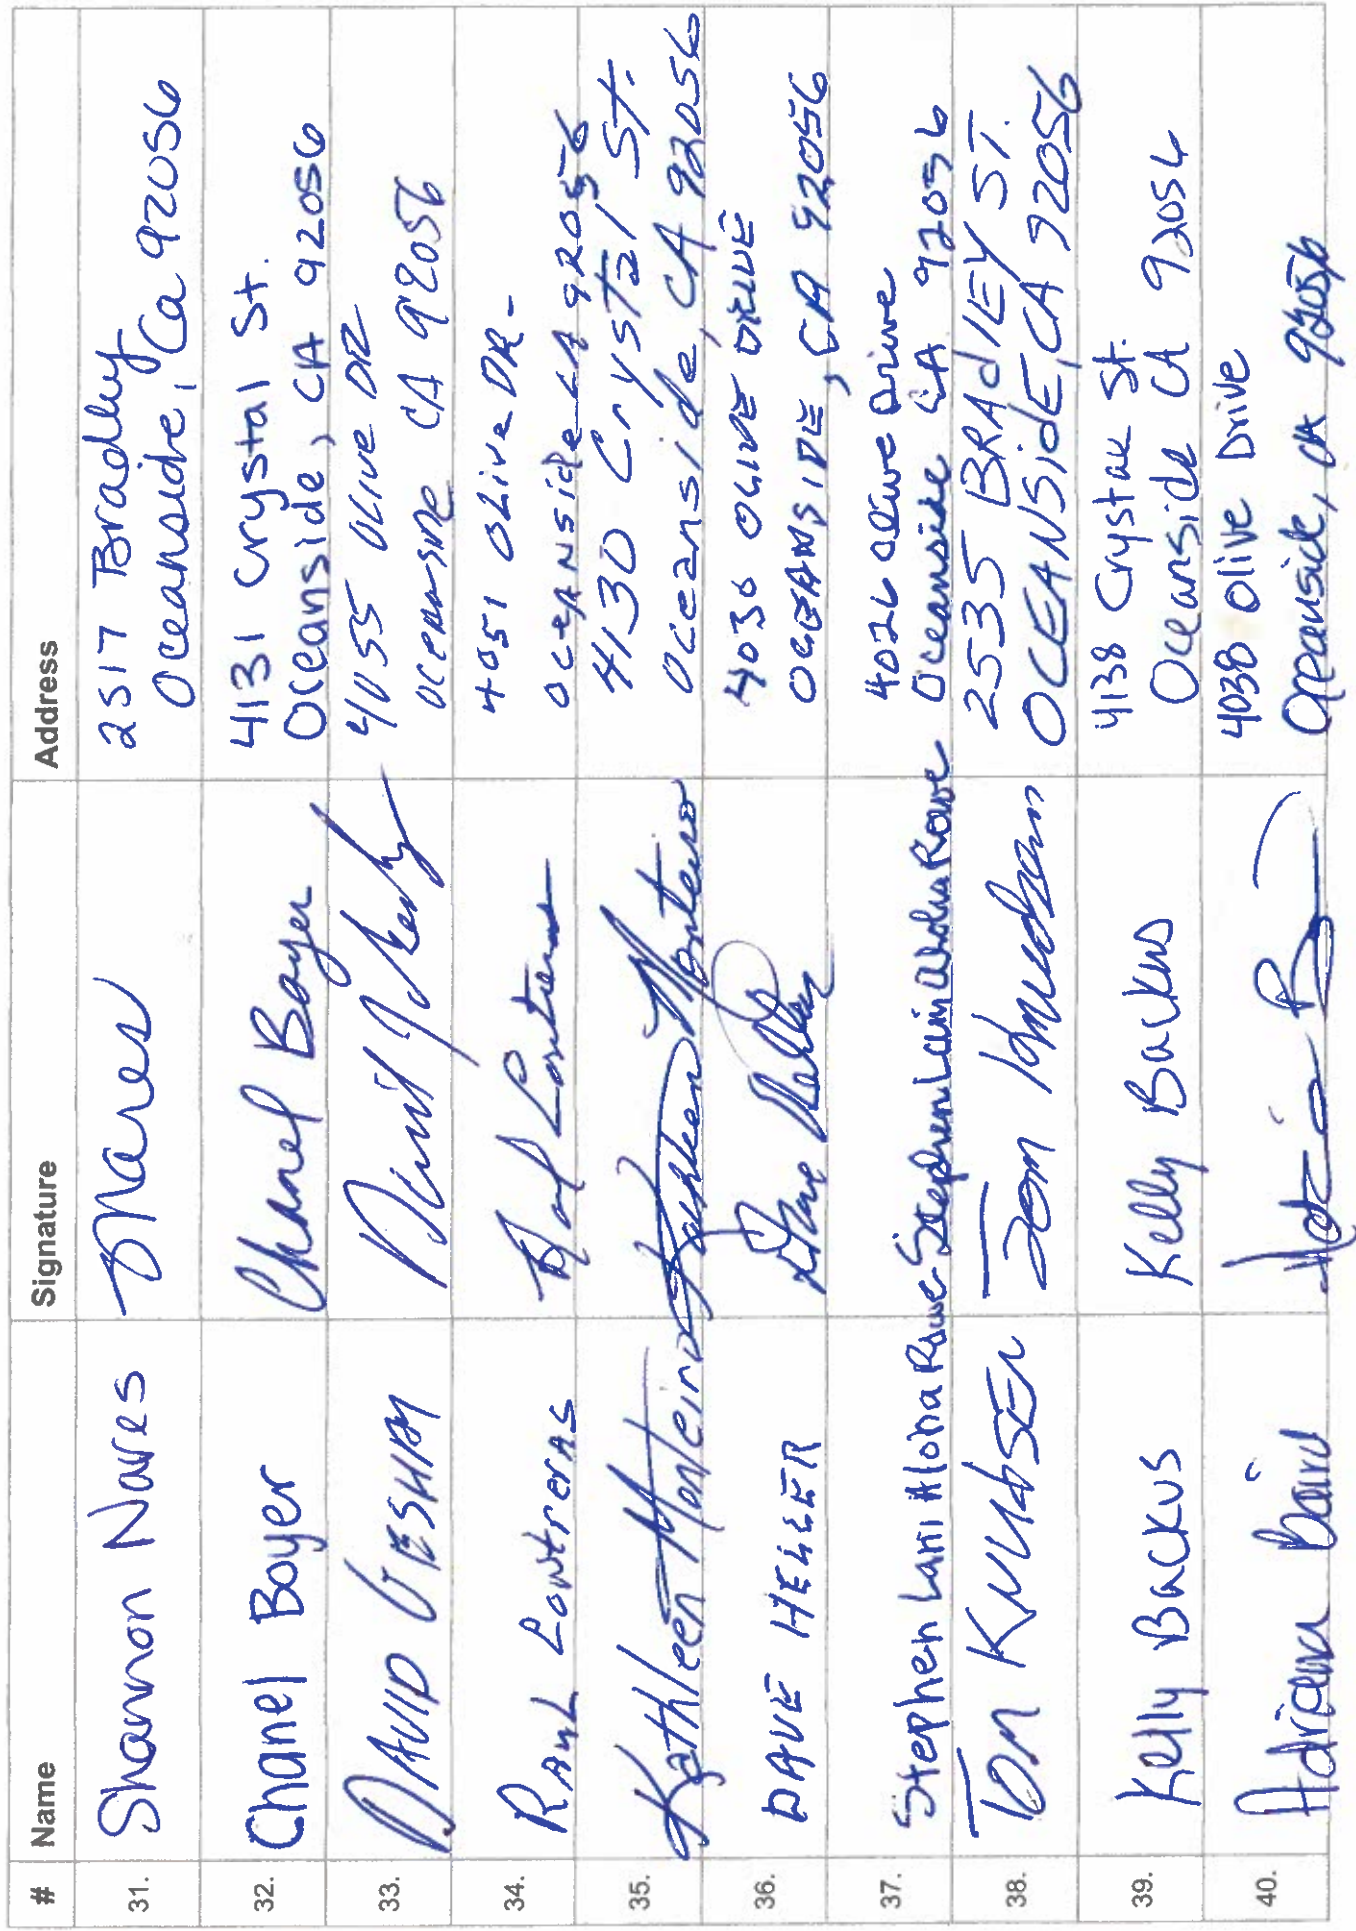 # Name Signature Address
31. Shannon Nares SNares 2517 Bradley
Oceanside, Ca 92056
32. Chanel Boyer Chanel Boyer 4131 Crystal St.
Oceanside, CA 92056
33. DAVID 4055 OLIVE DR
OCEANSIDE CA 92056
34. RAUL CONTRERAS 4051 OLive DR-
OCEANSide CA 92056
35. Kathleen Monteiro Kathleen Monteiro 4130 Crystal St.
Oceanside, CA 92056
36. DAVE HELLER Dave Heller 4036 OLIVE DRIVE
OCEANSIDE, CA 92056
37. Stephen Lani Aloha Rowe Stephen Lani Aloha Rowe 4026 Olive Drive
Oceanside CA 92056
38. TOM KNUDSEN Tom Knudsen 2535 BRAdlEY ST.
OCEANSidE, CA 92056
39. Kelly Backus Kelly Backus 4138 Crystal St.
Oceanside CA 92056
40. Adriena Baird 4038 Olive Drive
Oceanside, CA 92056